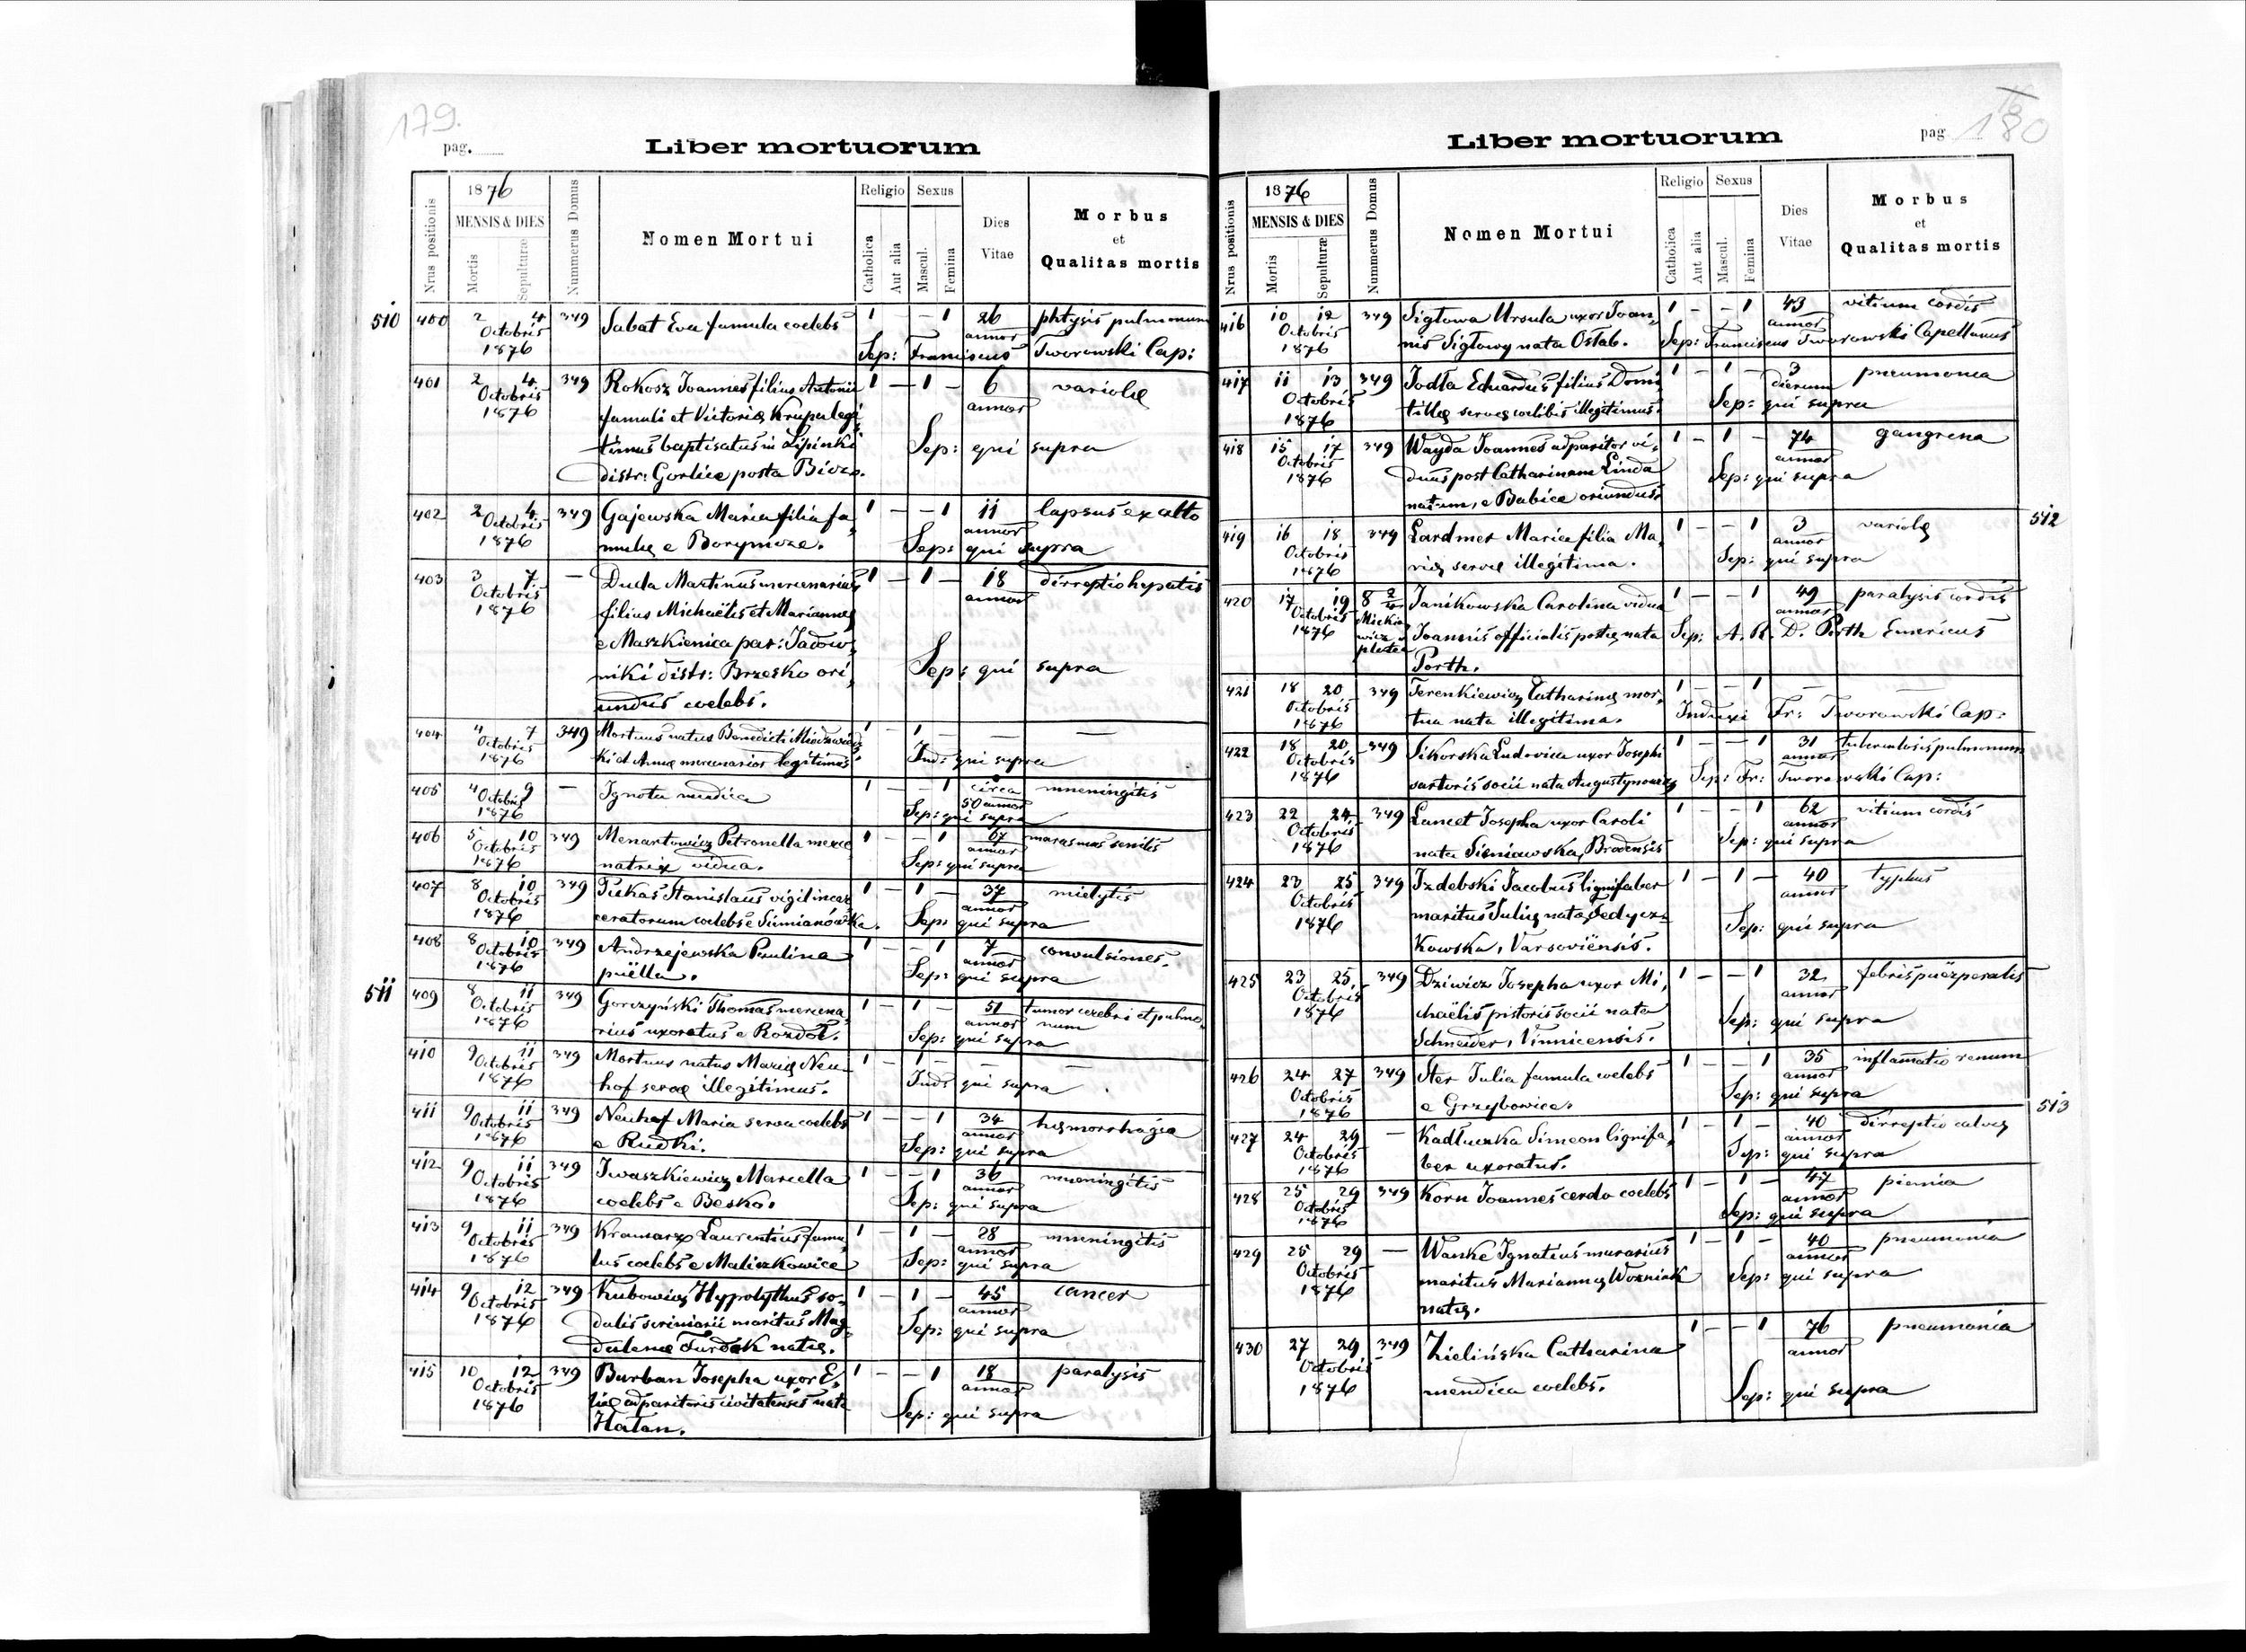 179.
pag.
Liber mortuorum
Nrus positionis
1876
MENSIS & DIES
Mortis
Sepulturæ
Nummerus Domus
Nomen Mortui
Religio
Catholica
Aut alia
Sexus
Mascul.
Femina
Dies
Vitae
Morbus
et
Qualitas mortis
510
400 2 4 349 Sabat Eva famula coelebs 1 - - 1 26 phtysis pulmonum
Octobris annor
1876 Sep: Franciscus Tworowski Cap:
401 2 4 349 Rokosz Joannes filius Antonii 1 - 1 - 6 variolę
Octobris famuli et Victorię Krupa legi annor
1876 timus baptisatus in Lipinki Sep: qui supra
distr: Gorlice posta Biecz.
402 2 4 349 Gajewska Maria filia fa 1 - - 1 11 lapsus ex alto
Octobris annor
1876 mulę e Borynicze. Sep: qui supra
403 3 7 - Duda Martinus mercenarius 1 - 1 - 18 dirreptio hepatis
Octobris filius Michaëlis et Mariannę annor
1876 e Maszkienica par: Jadow
niki distr: Brzesko ori Sep: qui supra
undus coelebs.
404 4 7 349 Mortuus natus Benedicti 1 - 1 - - -
Octobris ki et Annę mercenarior legitimus. Ind: qui supra
1876
405 4 9 - Ignota mendica 1 - - 1 circa mneningitis
Octobris 50 annor
1876 Sep: qui supra
406 5 10 349 Menartowicz Petronella merce 1 - - 1 67 marasmus senilis
Octobris annor
1876 natrix vidua. Sep: qui supra
407 8 10 349 Pickas Stanislaus vigil incar 1 - 1 - 37 mielytis
Octobris annor
1876 ceratorum coelebs e Simianówka. Sep: qui supra
408 8 10 349 Andrzejewska Paulina 1 - - 1 7 convulsiones.
Octobris annor
1876 puëlla. Sep: qui supra
511
409 8 11 349 Gorczyński Thomas mercena 1 - 1 - 51 tumor cerebri et pulmo
Octobris annor num
1876 rius uxoratus e Rozdół. Sep: qui supra
410 9 11 349 Mortuus natus Marię Neu 1 - 1 - - -
Octobris
1876 hof servę illegitimus. Ind: qui supra
411 9 11 349 Neuhof Maria serva coelebs 1 - - 1 34 hęmorrhagia
Octobris annor
1876 e Rudki. Sep: qui supra
412 9 11 349 Iwaszkiewicz Marcella 1 - - 1 36 mneningitis
Octobris annor
1876 coelebs e Besko. Sep: qui supra
413 9 11 349 Kramarz Laurentius famu 1 - 1 - 28 mneningitis
Octobris annor
1876 lus coelebs e Maliczkowice Sep: qui supra
414 9 12 349 Kubowicz Hypolythus so- 1 - 1 - 45 cancer
Octobris dalis scriniarii maritus Mag annor
1876 dalenę Turdak natę. Sep: qui supra
415 10 12 349 Burban Josepha uxor E 1 - - 1 18 paralysis
Octobris lię adparitoris civitatensis nata annor
1876 Hatan. Sep: qui supra
pag 180
Liber mortuorum
Nrus positionis
1876
MENSIS & DIES
Mortis
Sepulturæ
Nummerus Domus
Nomen Mortui
Religio
Catholica
Aut alia
Sexus
Mascul.
Femina
Dies
Vitae
Morbus
et
Qualitas mortis
416 10 12 349 Sigtowa Ursula uxor Joan 1 - - 1 43 vitium cordis
Octobris annor
1876 nis Sigtowy nata Ostab. Sep: Franciscus Tworowski Capellanus
417 11 13 349 Jodła Eduardus filius Domi 1 - 1 - 3 pneumonia
Octobris dierum
1876 tillę servę coelibis illegitimus. Sep: qui supra
418 15 17 349 Wayda Joannes adparitor vi 1 - 1 - 74 gangrena
Octobris duus post Catharinam Linda annor
1876 natam, e Babice oriundus. Sep: qui supra
512
419 16 18 349 Lardmer Maria filia Ma 1 - - 1 3 variolę
Octobris annor
1876 rię servę illegitima. Sep: qui supra
420 17 19 8 2/4 Janikowska Carolina vidua 1 - - 1 49 paralysis cordis
Octobris Mickie annor
1876 wicz Joannis officialis postę nata Sep: A. R. D. Porth Emericus
platea Porth.
421 18 20 349 Terenkiewicz Catharinę mor 1 - - 1 - -
Octobris
1876 tua nata illegitima. Induxi Fr: Tworowski Cap:
422 18 20 349 Sikorska Ludovica uxor Josephi 1 - - 1 31 tuberculosis pulmonum
Octobris annor
1876 sartoris socii nata Augustynowicz Sep: Fr: Tworowski Cap:
423 22 24 349 Lancet Josepha uxor Caroli 1 - - 1 62 vitium cordis
Octobris annor
1876 nata Sieniawska, Brodensis Sep: qui supra
424 23 25 349 Izdebski Jacobus lignifaber 1 - 1 - 40 typhus
Octobris maritus Julię natę Sedycz- annor
1876 kowska, Varsoviënsis. Sep: qui supra
425 23 25 349 Dziwicz Josepha uxor Mi 1 - - 1 32 febris puërperalis
Octobris chaëlis pistoris socii nata annor
1876 Schneider, Vinnicensis. Sep: qui supra
426 24 27 349 Ster Julia famula coelebs 1 - - 1 35 inflamatio renum
Octobris annor
1876 e Grzybowice. Sep: qui supra
513
427 24 29 - Kadłuczka Simeon lignifa 1 - 1 - 40 dirreptio calvę
Octobris annor
1876 ber uxoratus. Sep: qui supra
428 25 29 349 Korn Joannes cerdo coelebs 1 - 1 - 47 piemia
Octobris annor
1876 Sep: qui supra
429 25 29 - Wanke Ignatius murarius 1 - 1 - 40 pneumonia
Octobris maritus Mariannę Wozniak annor
1876 natę. Sep: qui supra
430 27 29 349 Zielińska Catharina 1 - - 1 76 pneumonia
Octobris annor
1876 mendica coelebs. Sep: qui supra